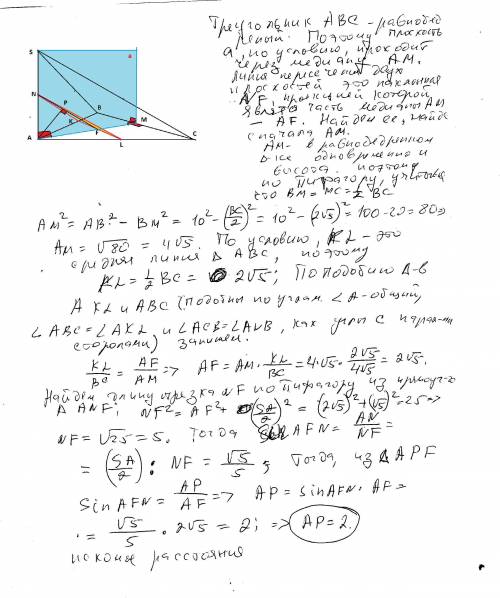 S
a
N
P
B
K
M
A
F
L
C
Треугольник ABC - равнобед
ренный. Поэтому плоскость
a, по условию, проходит
через медиану AM.
линия пересечения двух
плоскостей это наклонная
NF, проекцией которой
является часть медианы AM
- AF. Найдем её, найдя
сначала AM.
AM - в равнобедренном
Δ-ке одновременно и
высота. поэтому
по Пифагору, учитывая
что BM = MC = ½ BC
AM² = AB² - BM² = 10² - (BC/2)² = 10² - (2√5)² = 100 - 20 = 80
AM = √80 = 4√5. По условию, KL - это
средняя линия Δ ABC, поэтому
KL = 1/2 BC = 2√5; По подобию Δ-в
AKL и ABC (подобны по углам. ∠A - общий,
∠ABC = ∠AKL и ∠ACB = ∠ALB, как углы с паралл-ми
сторонами) запишем.
KL/BC = AF/AM => AF = AM · KL/BC = 4√5 · 2√5/4√5 = 2√5.
Найдем длину отрезка NF по Пифагору из прямоуг-го
Δ ANF: NF² = AF² + (SA/2)² = (2√5)² + (√5)² = 25 =>
NF = √25 = 5. Тогда sin AFN = AN/NF =
= (SA/2) : NF = √5/5; Тогда, из Δ APF
sin AFN = AP/AF => AP = sin AFN · AF =
= √5/5 · 2√5 = 2; => AP = 2.
расстояния